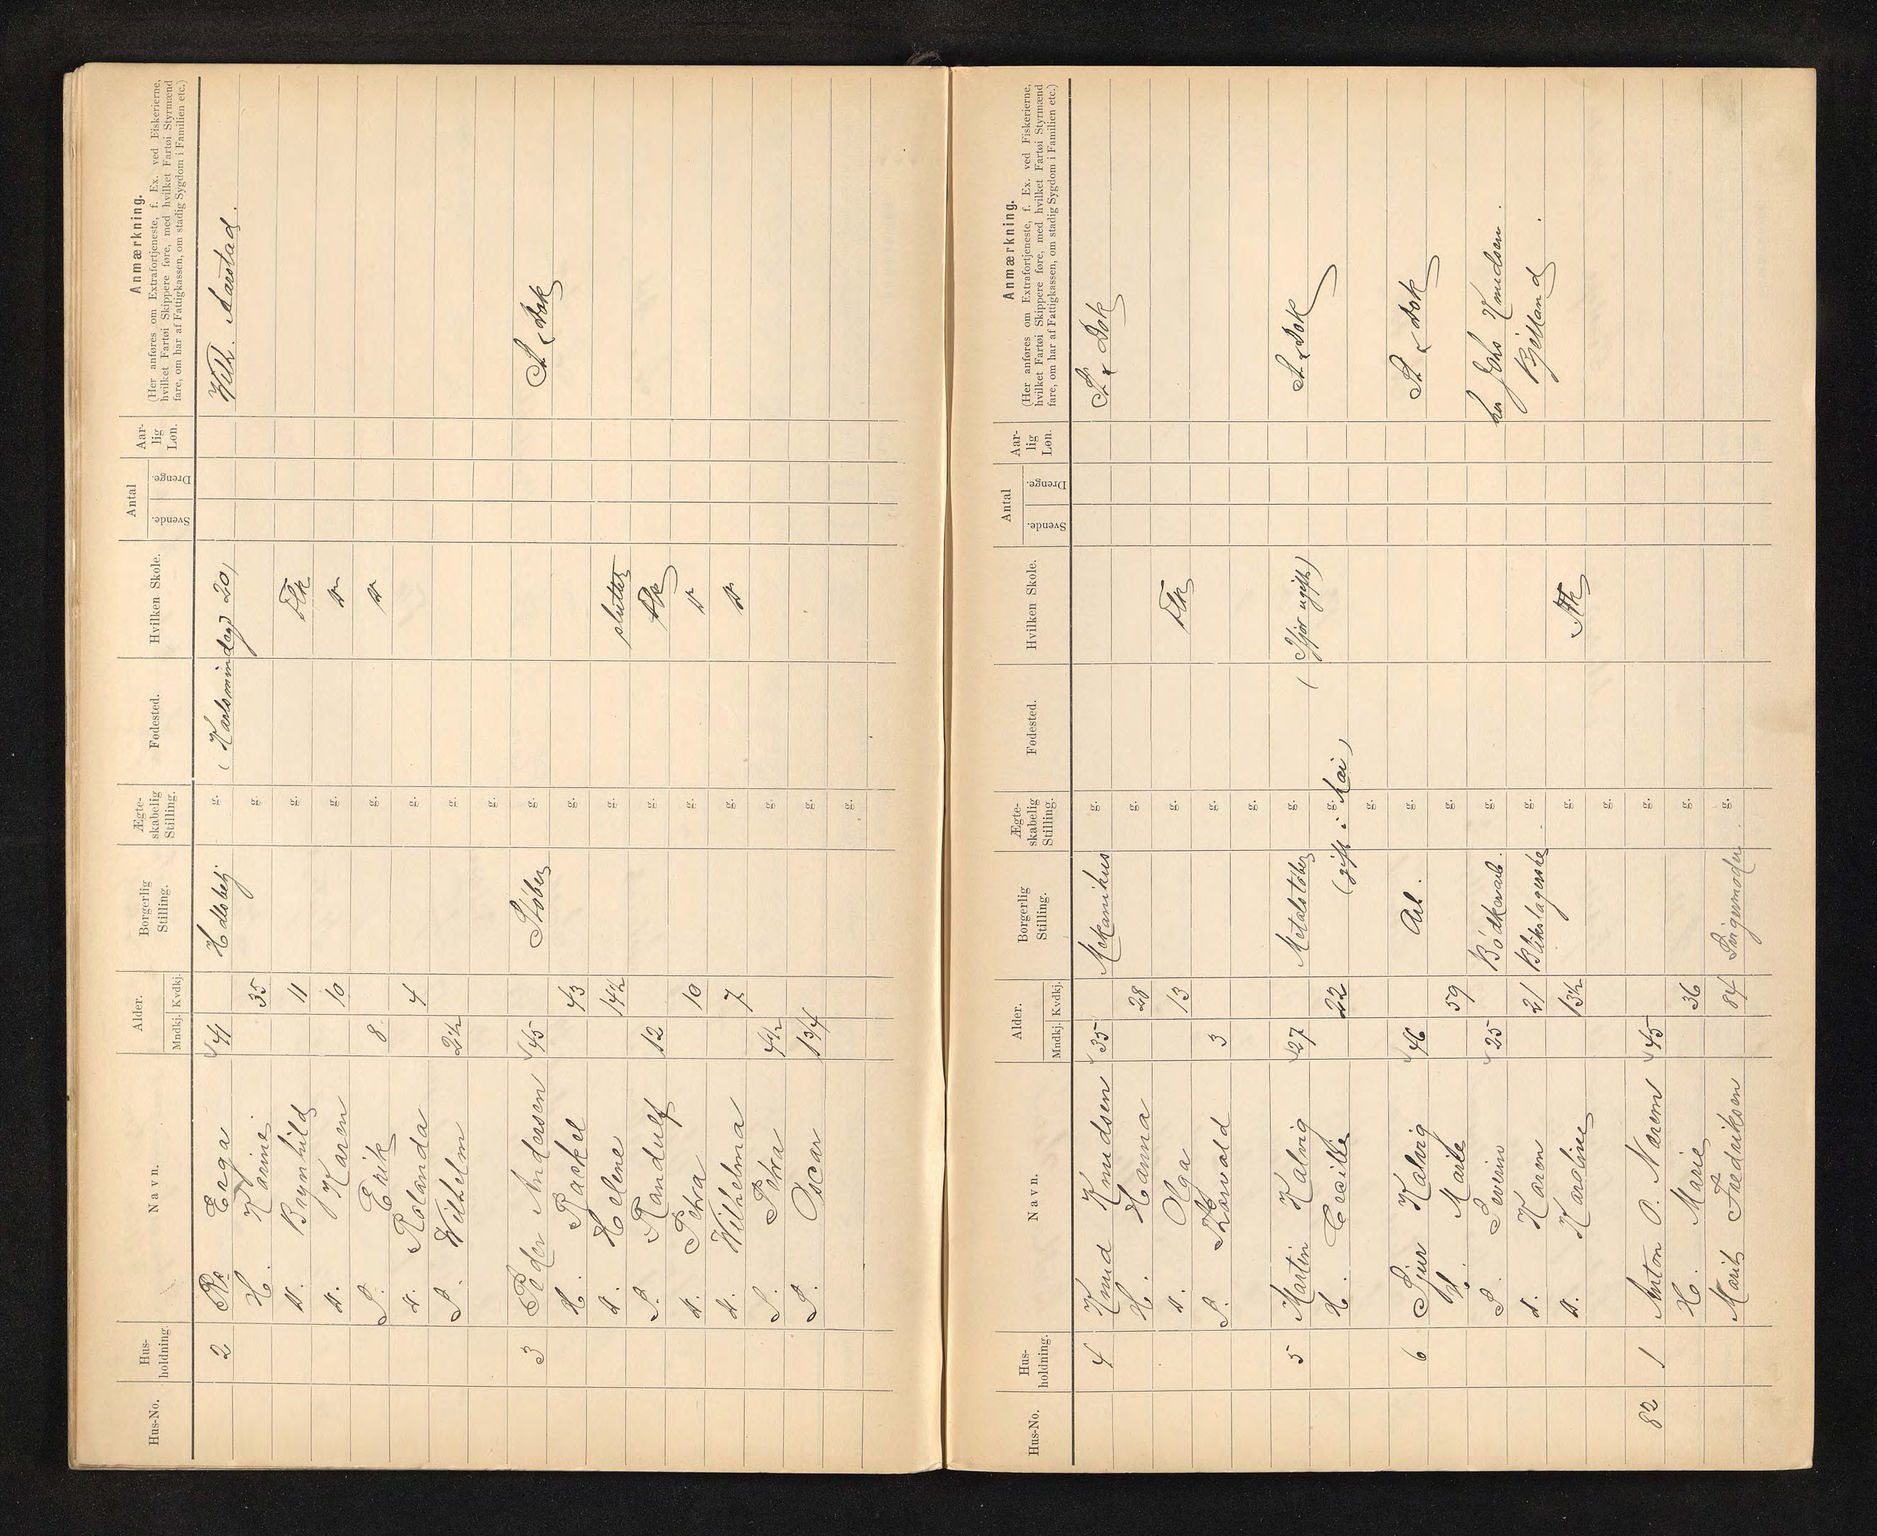 Hus-No. Hus-holdning. Navn. Alder. Mndkj. Kvdkj. Borgerlig Stilling. Ægte-skabelig Stilling. Fødested. Hvilken Skole. Antal Svende. Drenge. Aar-lig Løn. Anmærkning.
(Her anføres om Extrafortjeneste, f. Ex. ved Fiskerierne,
hvilket Fartøi Skippere føre, med hvilket Fartøi Styrmænd
fare, om har af Fattigkassen, om stadig Sygdom i Familien etc.)
2 Erga 41 g. 20) Vilh. Aarstad.
H. Karine 35 g.
d. Brynhild 11 g. Flk
d. Karen 10 g. "
S. Erik 8 g. "
d. Rolanda 4 g.
S. Wilhelm 2½ g.
g.
3 Peder Andersen 45 Støber g. St. Dok
H. Rackel 43 g.
d. Helene 14½ g. sluttet
S. Randulf 12 g. Flk
d. Petra 10 g. "
d. Wilhelma 7 g. "
S. Petra 4½ g.
S. Oscar 1 3/4 g.
g.
Hus-No. Hus-holdning. Navn. Alder. Mndkj. Kvdkj. Borgerlig Stilling. Ægte-skabelig Stilling. Fødested. Hvilken Skole. Antal Svende. Drenge. Aar-lig Løn. Anmærkning.
(Her anføres om Extrafortjeneste, f. Ex. ved Fiskerierne,
hvilket Fartøi Skippere føre, med hvilket Fartøi Styrmænd
fare, om har af Fattigkassen, om stadig Sygdom i Familien etc.)
4 Knud Knudsen 35 Mekanikus g. St. Dok
H. Hanna 28 g.
d. Olga 13 g. Flk
S. Thorvald 3 g.
g.
5 Martin Kalvig 27 Metalstøber g. (ifjor ugift) St. Dok
H. Cecilie 22 (gift i Mai) g.
g.
6 Sjur Kalvig 46 Arb. g. St. Dok
H. Marte 59 g.
S. Severin 25 Bødkerarb. g. hos Johs Knudsen.
d. Karen 21 g. Bjelland.
d. Karoline 13½ g. Flk
g.
82 1 Anton O. Nærem 45 g.
H. Marie 36 g.
Marit Fredriksen 84 Svigermoder g.